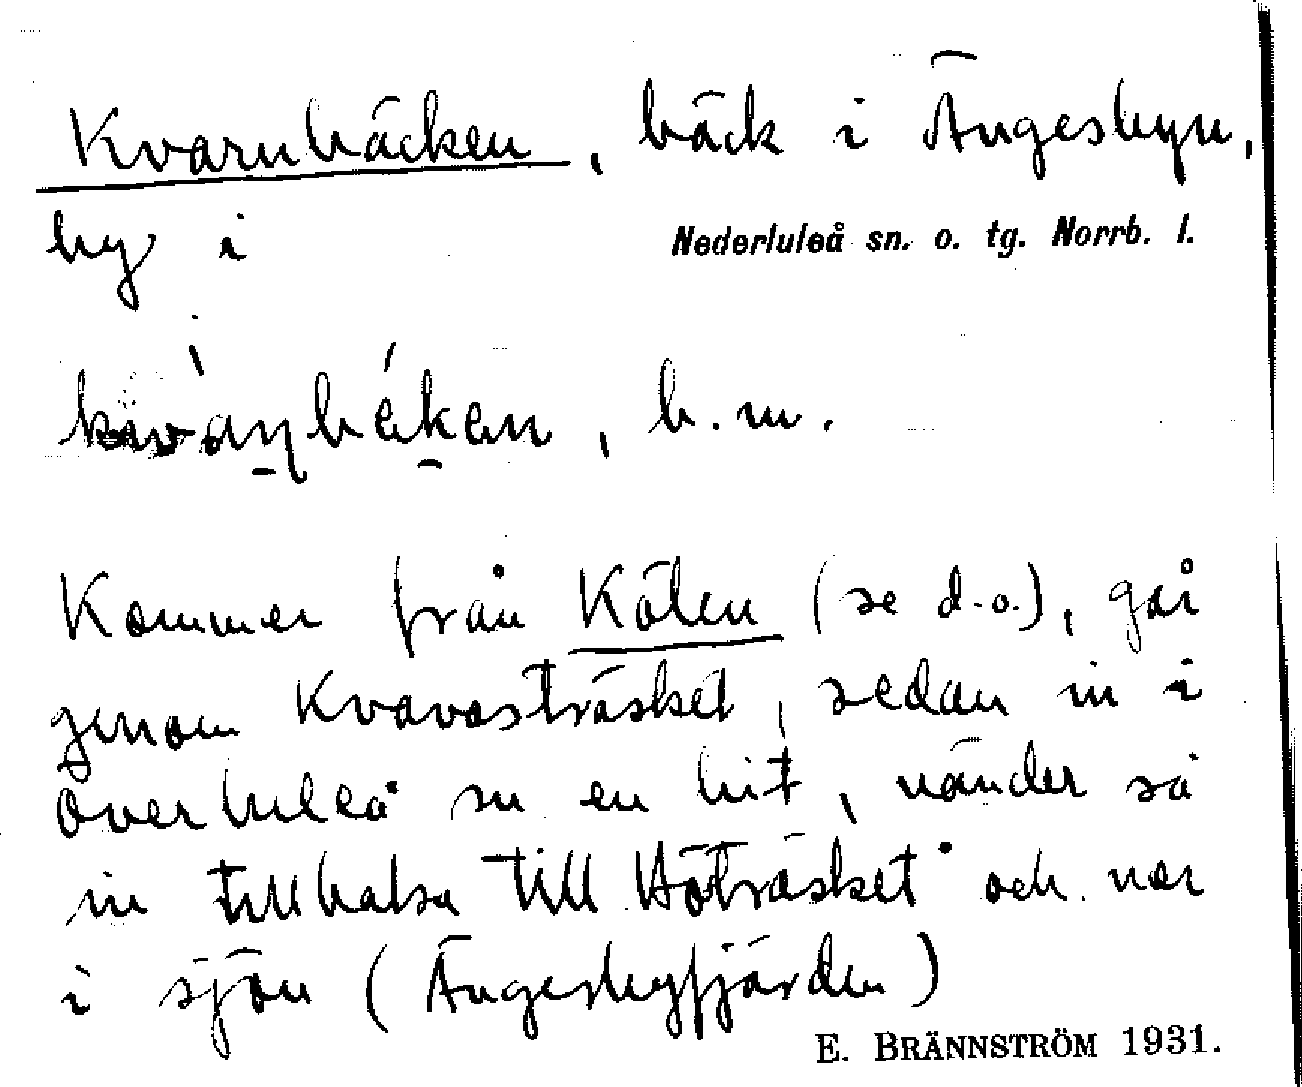 Kvarnbäcken, bäck i Ängesbyn,
by i Nederluleå sn. o. tg. Norrb. l.
b.m.
Kommer från Kölen (se d.o.), går
genom Kvavasträsket, sedan in i
Överluleå sn en bit, vänder så
in tillbaka till Höträsket och ner
i sjön (Ängesbyfjärden)
E. BRÄNNSTRÖM 1931.